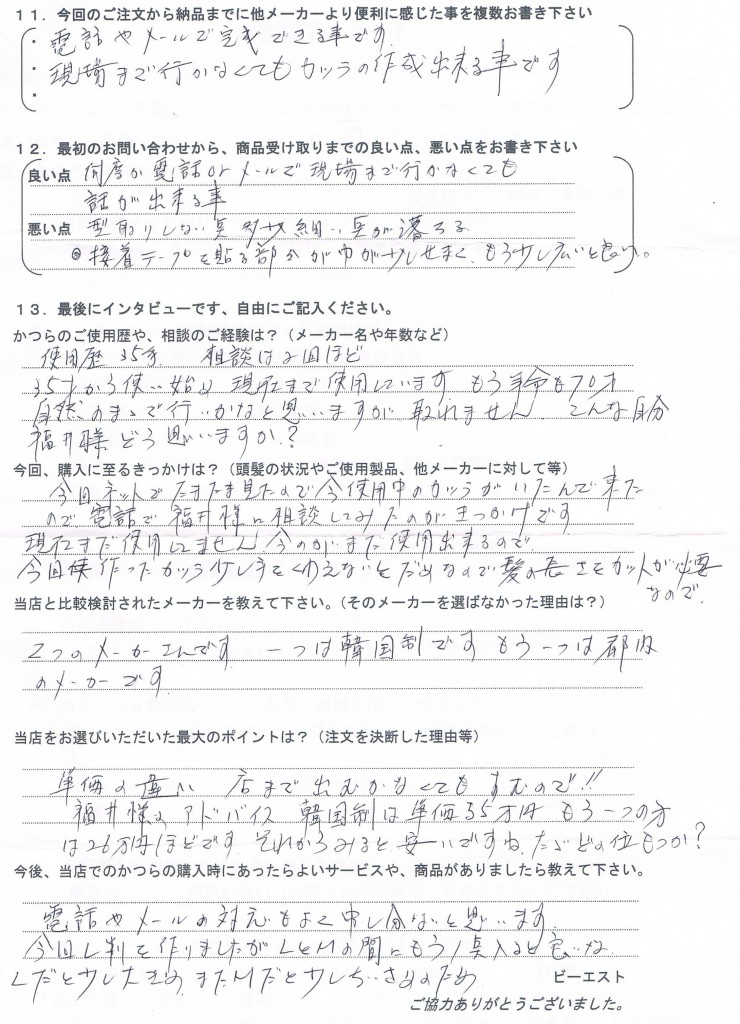 11．今回のご注文から納品までに他メーカーより便利に感じた事を複数お書き下さい
・電話やメールで完成できる事です
・現場まで行かなくてもカツラの作成出来る事です
・
12．最初のお問い合わせから、商品受け取りまでの良い点、悪い点をお書き下さい
良い点 何度か電話orメールで現場まで行かなくても
話が出来る事
悪い点 型取りしない点 多少細い点が落ちる
◎接着テープを貼る部分が巾が少しせまく、もう少し広いと良い。
13．最後にインタビューです、自由にご記入ください。
かつらのご使用歴や、相談のご経験は？（メーカー名や年数など）
使用歴35年 相談は2回ほど
35才から使い始め 現在まで使用しています もう年令も70才
自然のままで行いかなと思いますが 取れません こんな自分
福井様どう思いますか？
今回、購入に至るきっかけは？（頭髪の状況やご使用製品、他メーカーに対して等）
今回ネットでたまたま見たので今使用中のカツラがいたんで来た
ので電話で福井様に相談してみたのがきっかけです
現在まだ使用してません 今のがまだ使用出来るので
今回 作ったカツラ少し手をくわえないとだめなので髪の長さをカットが必要
なので
当店と比較検討されたメーカーを教えて下さい。（そのメーカーを選ばなかった理由は？）
2つのメーカーさんです 一つは韓国制です もう一つは都内
のメーカーです
当店をお選びいただいた最大のポイントは？（注文を決断した理由等）
単価の違い 店まで出むかなくてもすむので!!
福井様のアドバイス 韓国制は単価35万円 もう一つの方
は26万円ほどです それからみると安いですね ただどの位もつか？
今後、当店でのかつらの購入時にあったらよいサービスや、商品がありましたら教えて下さい。
電話やメールの対応もよく申し分ないと思います
今回L判を作りましたがLとMの間にもう1点入ると良いな
Lだと少し大きめ またMだと少しちいさめのため
ビーエスト
ご協力ありがとうございました。